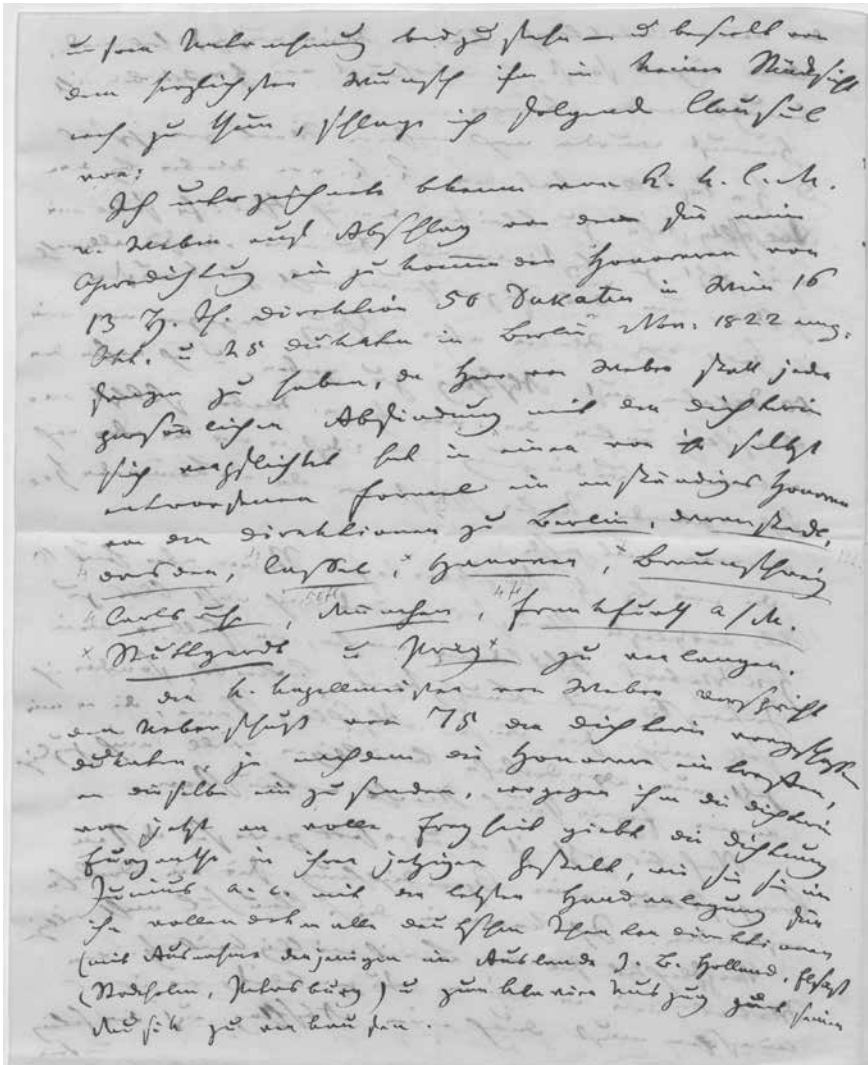 unserer Unternehmung beizustehn – u beseelt von
dem herzlichsten Wunsch ihm in keiner Rücksicht
weh zu thun, schlage ich folgende Clausul
vor:
Ich unterzeichnete bekenne von H. K. C. M.
v. Weber auf Abschlag von dem für meine
Operndichtung ein zu kommenden Honoraren von
13 H. Th. Direktion 50 Dukaten in Wien 16
Okt. u 25 Dukaten in Berlin Nbr. 1822 emp-
fangen zu haben, da Herr von Weber statt jeder
persönlichen Abfindung mit der Dichterin
sich verpflichtet hat in einer von ihr selbst
entworfenen Formel ein anständiges Honorar
von den Direktionen zu Berlin, Darmstadt,
Dresden, Cassel, Hanover, Braunschweig
Carlsruhe, München, Frankfurth a/M.
Stuttgardt u Prag zu verlangen.
Der K. Kapellmeister von Weber verspricht
den Ueberschuß von 75 der Dichterin vorgeschossenen
Dukaten, je nachdem die Honorare eingehen,
an dieselbe einzusenden, wogegen ihm die Dichterin
von jetzt an volle Freyheit giebt die Dichtung
Euryanthe in ihrer jetzigen Gestalt, wie sie sie im
Junius a. c. mit der letzten Handanlegung für
ihn vollendet an alle deutschen Theaterdirektionen
(mit Ausnahme derjenigen im Auslande z. B. Holland, Elsaß
(Stockholm, Petersburg) u zum Klavier Auszug seiner
Musik zu verkaufen.